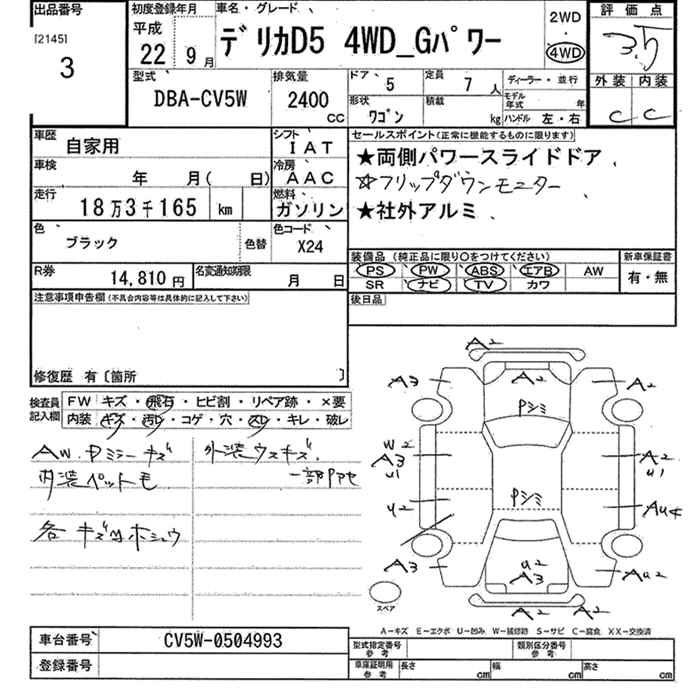 出品番号
[2145]
3
初度登録年月
平成
22年 9月
車名・グレード
デリカD5 4WD_Gパワー
2WD
・
4WD
評価点
3.5
外装 内装
C C
型式
DBA-CV5W
排気量
2400
CC
ドア 5
定員 7人
ディーラー・並行
形状
ワゴン
積載
kg
モデル年式 年
ハンドル 左・右
車歴
自家用
シフト
IAT
車検
年 月( 日)
冷房
AAC
走行
18万3千165 km
燃料
ガソリン
色
ブラック
色替
色コード
X24
R券
14,810円
名変通知期限
月 日
セールスポイント(正常に機能するものに限ります)
★両側パワースライドドア
☆フリップダウンモニター
★社外アルミ
装備品(純正品に限り○をつけてください)
PS PW ABS エアB AW
SR ナビ TV カワ
新車保証書
有・無
後日品
注意事項申告欄(不具合内容等は具体的に記入して下さい)
修復歴 有〔箇所 〕
検査員記入欄
FW キズ・飛石・ヒビ割・リペア跡・×要
内装 キズ・汚レ・コゲ・穴・スレ・キレ・破レ
AW、Dミラーキズ
外装ウスキズ、
内装ペットモ
一部Pアセ
各キズ凹ホシュウ
A2
A3 A2 A2
Pシミ
W2
A3
U1
A2
U1
Pシミ
U2
AU4
A3
U2
A3
AU2
A2 A2
スペア
A-キズ E-エクボ U-凹み W-補修跡 S-サビ C-腐食 XX-交換済
車台番号
CV5W-0504993
登録番号
型式指定番号
参考
類別区分番号
参考
車庫証明用
参考
長さ cm
幅 cm
高さ cm